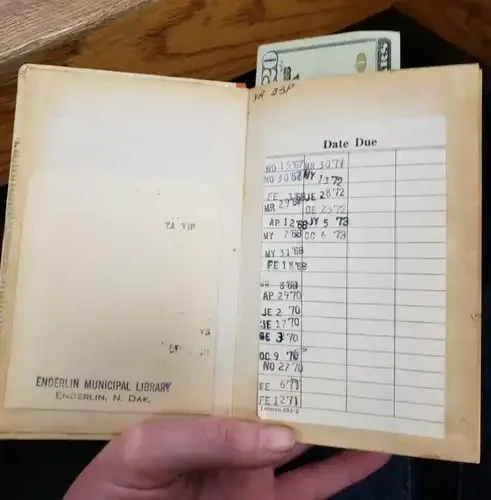 YA 33P
YA 33P
YA
ENDERLIN MUNICIPAL LIBRARY
ENDERLIN, N. DAK.
Date Due
NO 15 '67
NO 30 '67
FE
MR 29 '68
AP 12 '68
MY 7 '68
MY 31 '68
FE 18 '69
AP 29 70
JE 2 '70
JE 17 '70
DE 3 '70
OC 9 '70
NO 27 '70
FE 6 '71
FE 12 '71
MR 30 '71
MY 13 72
JE 28 '72
DE 23 72
JY 5 '73
OC 6 '73